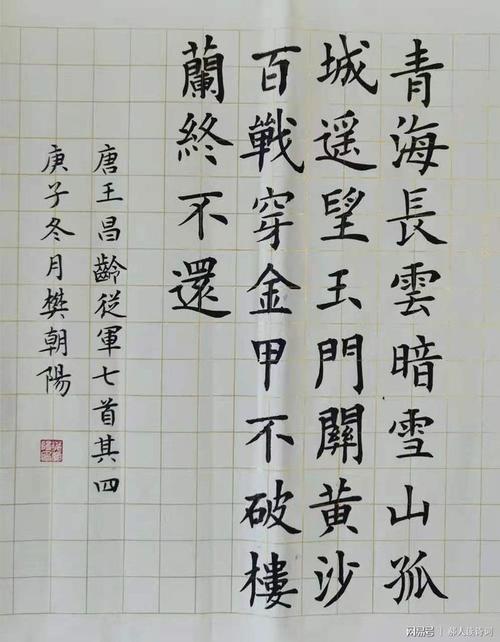 青海長雲暗雪山孤
城遥望玉門關黄沙
百戰穿金甲不破樓
蘭終不還
唐王昌齡從軍七首其四
庚子冬月樊朝陽
网易号 | 郝人读诗词